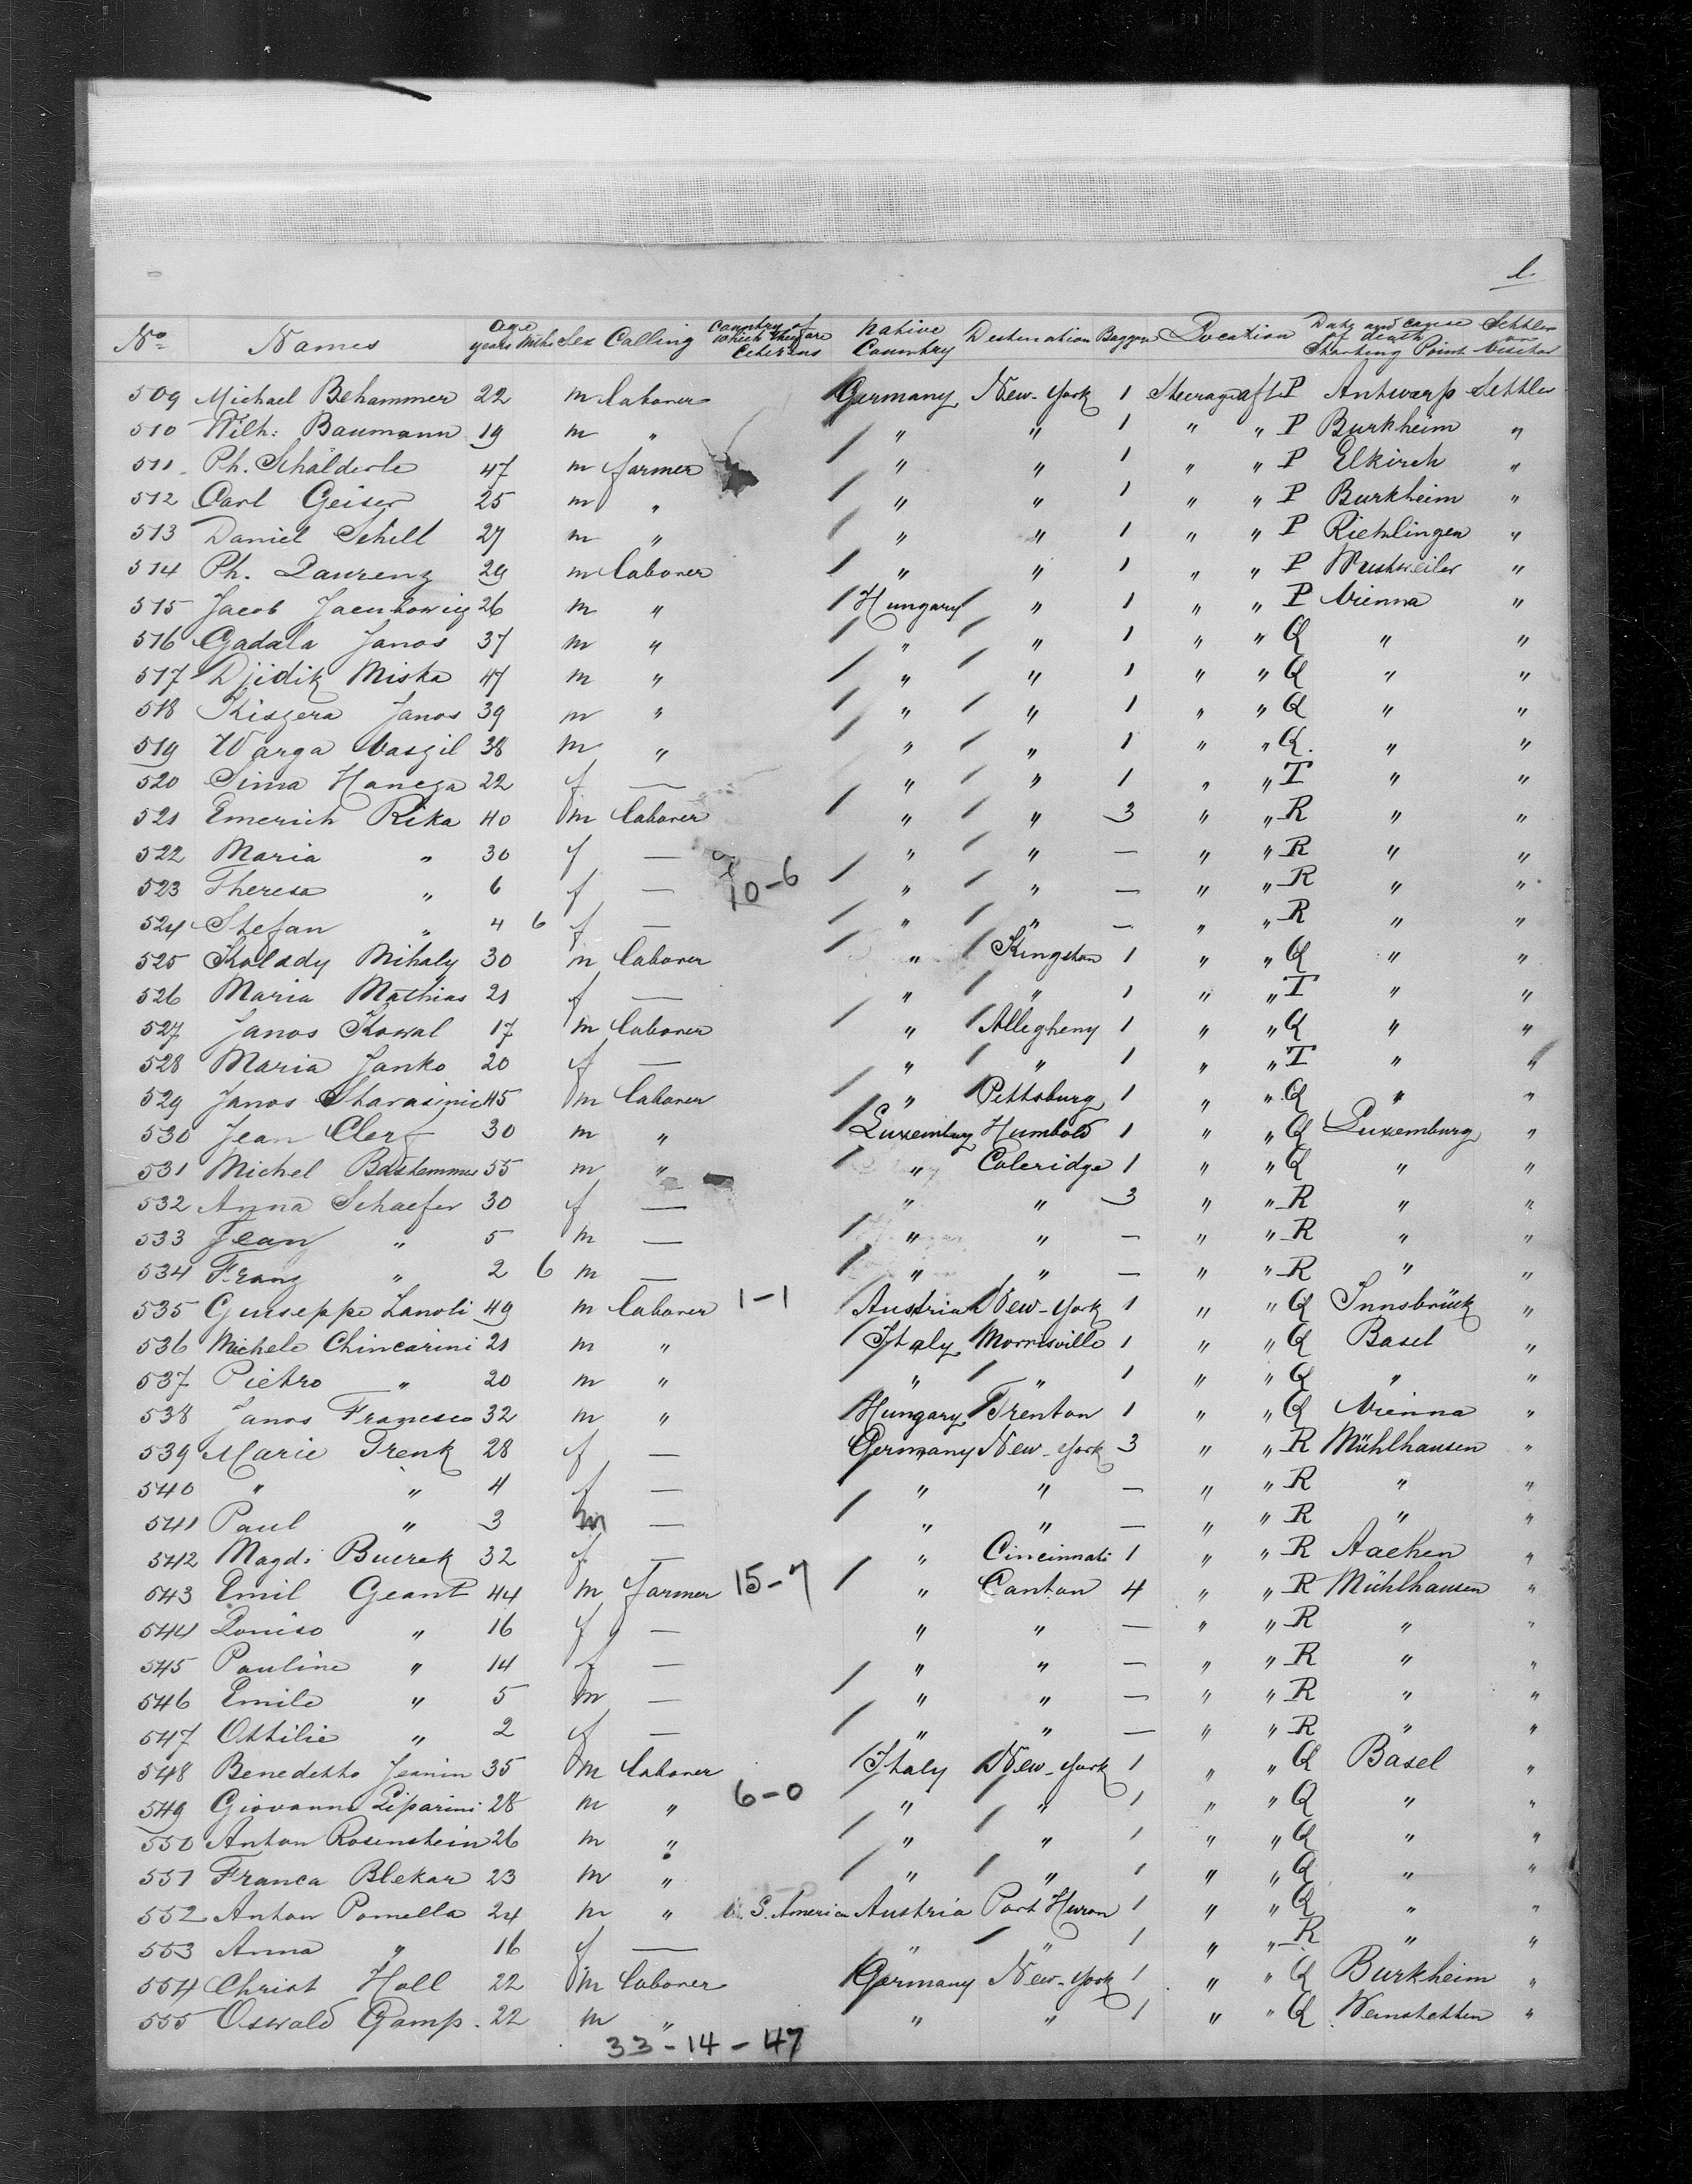 l
No Names age years Mths Sex Calling Country of which they are Citizens Native Country Destination Baggage Location Date and cause of death Starting Point Settler or Visitor
509 Michael Behammer 22 m laborer Germany New-York 1 Steerage aft P Antwerp Settler
510 Wilh: Baumann 19 m " " " 1 " " P Burkheim "
511 Ph. Schälderle 47 m farmer " " 1 " " P Elkirch "
512 Carl Geiser 25 m " " " 1 " " P Burkheim "
513 Daniel Schill 27 m " " " 1 " " P Riehlingen "
514 Ph. Laurenz 29 m laborer " " 1 " " P "
515 Jacob Jacubowicz 26 m " Hungary " 1 " " P Vienna "
516 Gadala Janos 37 m " " " 1 " " Q " "
517 Djidik Miska 47 m " " " 1 " " Q " "
518 Kiszera Janos 39 m " " " 1 " " Q " "
519 Warga Vaszil 38 m " " " 1 " " Q. " "
520 Sima Hanega 22 f — " " 1 " " T " "
521 Emerich Rika 40 m laborer " " 3 " " R " "
522 Maria " 30 f — " " — " " R " "
523 Theresa " 6 f — 10-6 " " — " " R " "
524 Stefan " 4 6 f — " " — " " R " "
525 Kolady Mihaly 30 m laborer " Kingston 1 " " Q " "
526 Maria Mathias 21 f — " " 1 " " T " "
527 Janos Kowal 17 m laborer " Allegheny 1 " " Q " "
528 Maria Janko 20 f — " " 1 " " T " "
529 Janos 45 m laborer " Pettsburg 1 " " Q " "
530 Jean Clerf 30 m " Luxemburg Humbold 1 " " Q Luxemburg "
531 Michel 55 m " " Coleridge 1 " " Q " "
532 Anna Schaefer 30 f — " " 3 " " R " "
533 Jean " 5 m — " " — " " R " "
534 Franz " 2 6 m — " " — " " R " "
535 Guiseppe Zanoli 49 m laborer 1-1 Austria New-York 1 " " Q Innsbrück "
536 Michele Chincarini 21 m " Italy Morrisville 1 " " Q Basel "
537 Pietro " 20 m " " " 1 " " Q " "
538 Janos Francsco 32 m " Hungary Trenton 1 " " Q Vienna "
539 Marie Trenk 28 f — Germany New-York 3 " " R Mühlhausen "
540 " " 4 f — " " — " " R " "
541 Paul " 3 m — " " — " " R " "
542 Magd: Buerek 32 f — " Cincinnati 1 " " R Aachen "
543 Emil Geant 44 m farmer 15-7 " Canton 4 " " R Mühlhausen "
544 Louise " 16 f — " " — " " R " "
545 Pauline " 14 f — " " — " " R " "
546 Emile " 5 m — " " — " " R " "
547 Ottilie " 2 f — " " — " " R " "
548 Benedetto Jeanin 35 m laborer Italy New-York 1 " " Q Basel "
549 Giovanni Liparini 28 m " 6-0 " " 1 " " Q " "
550 Anton Rosenstein 26 m " " " 1 " " Q " "
551 Franca Blekar 23 m " " " 1 " " Q " "
552 Anton Pomella 24 m " U.S. America Austria Port Huron 1 " " Q " "
553 Anna " 16 f — " " 1 " " R " "
554 Christ Holl 22 m laborer Germany New-York 1 " " Q Burkheim "
555 Oswald Gamp. 22 m " " " 1 " " Q Weinstetten "
33-14-47